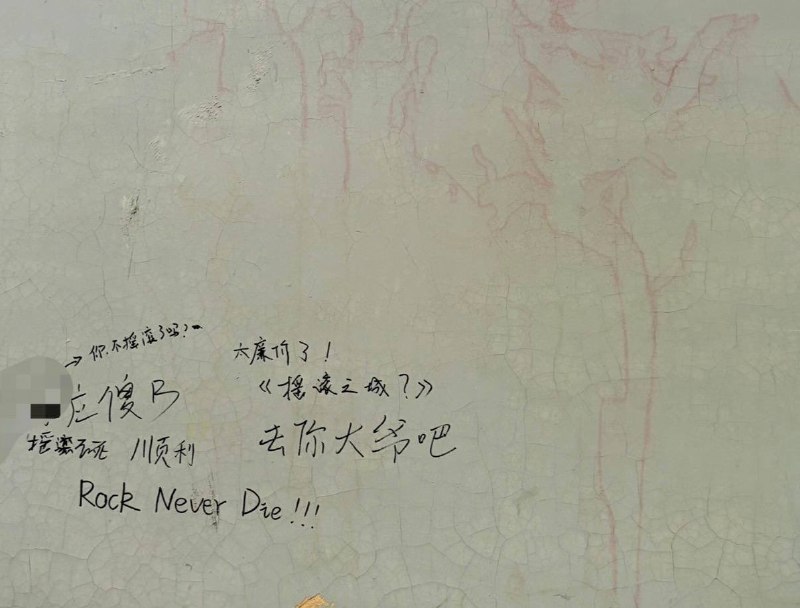 →你不摇滚了吗?
应傻B
摇滚不死 顺利
太廉价了!
《摇滚之城?》
去你大爷吧
Rock Never Die!!!